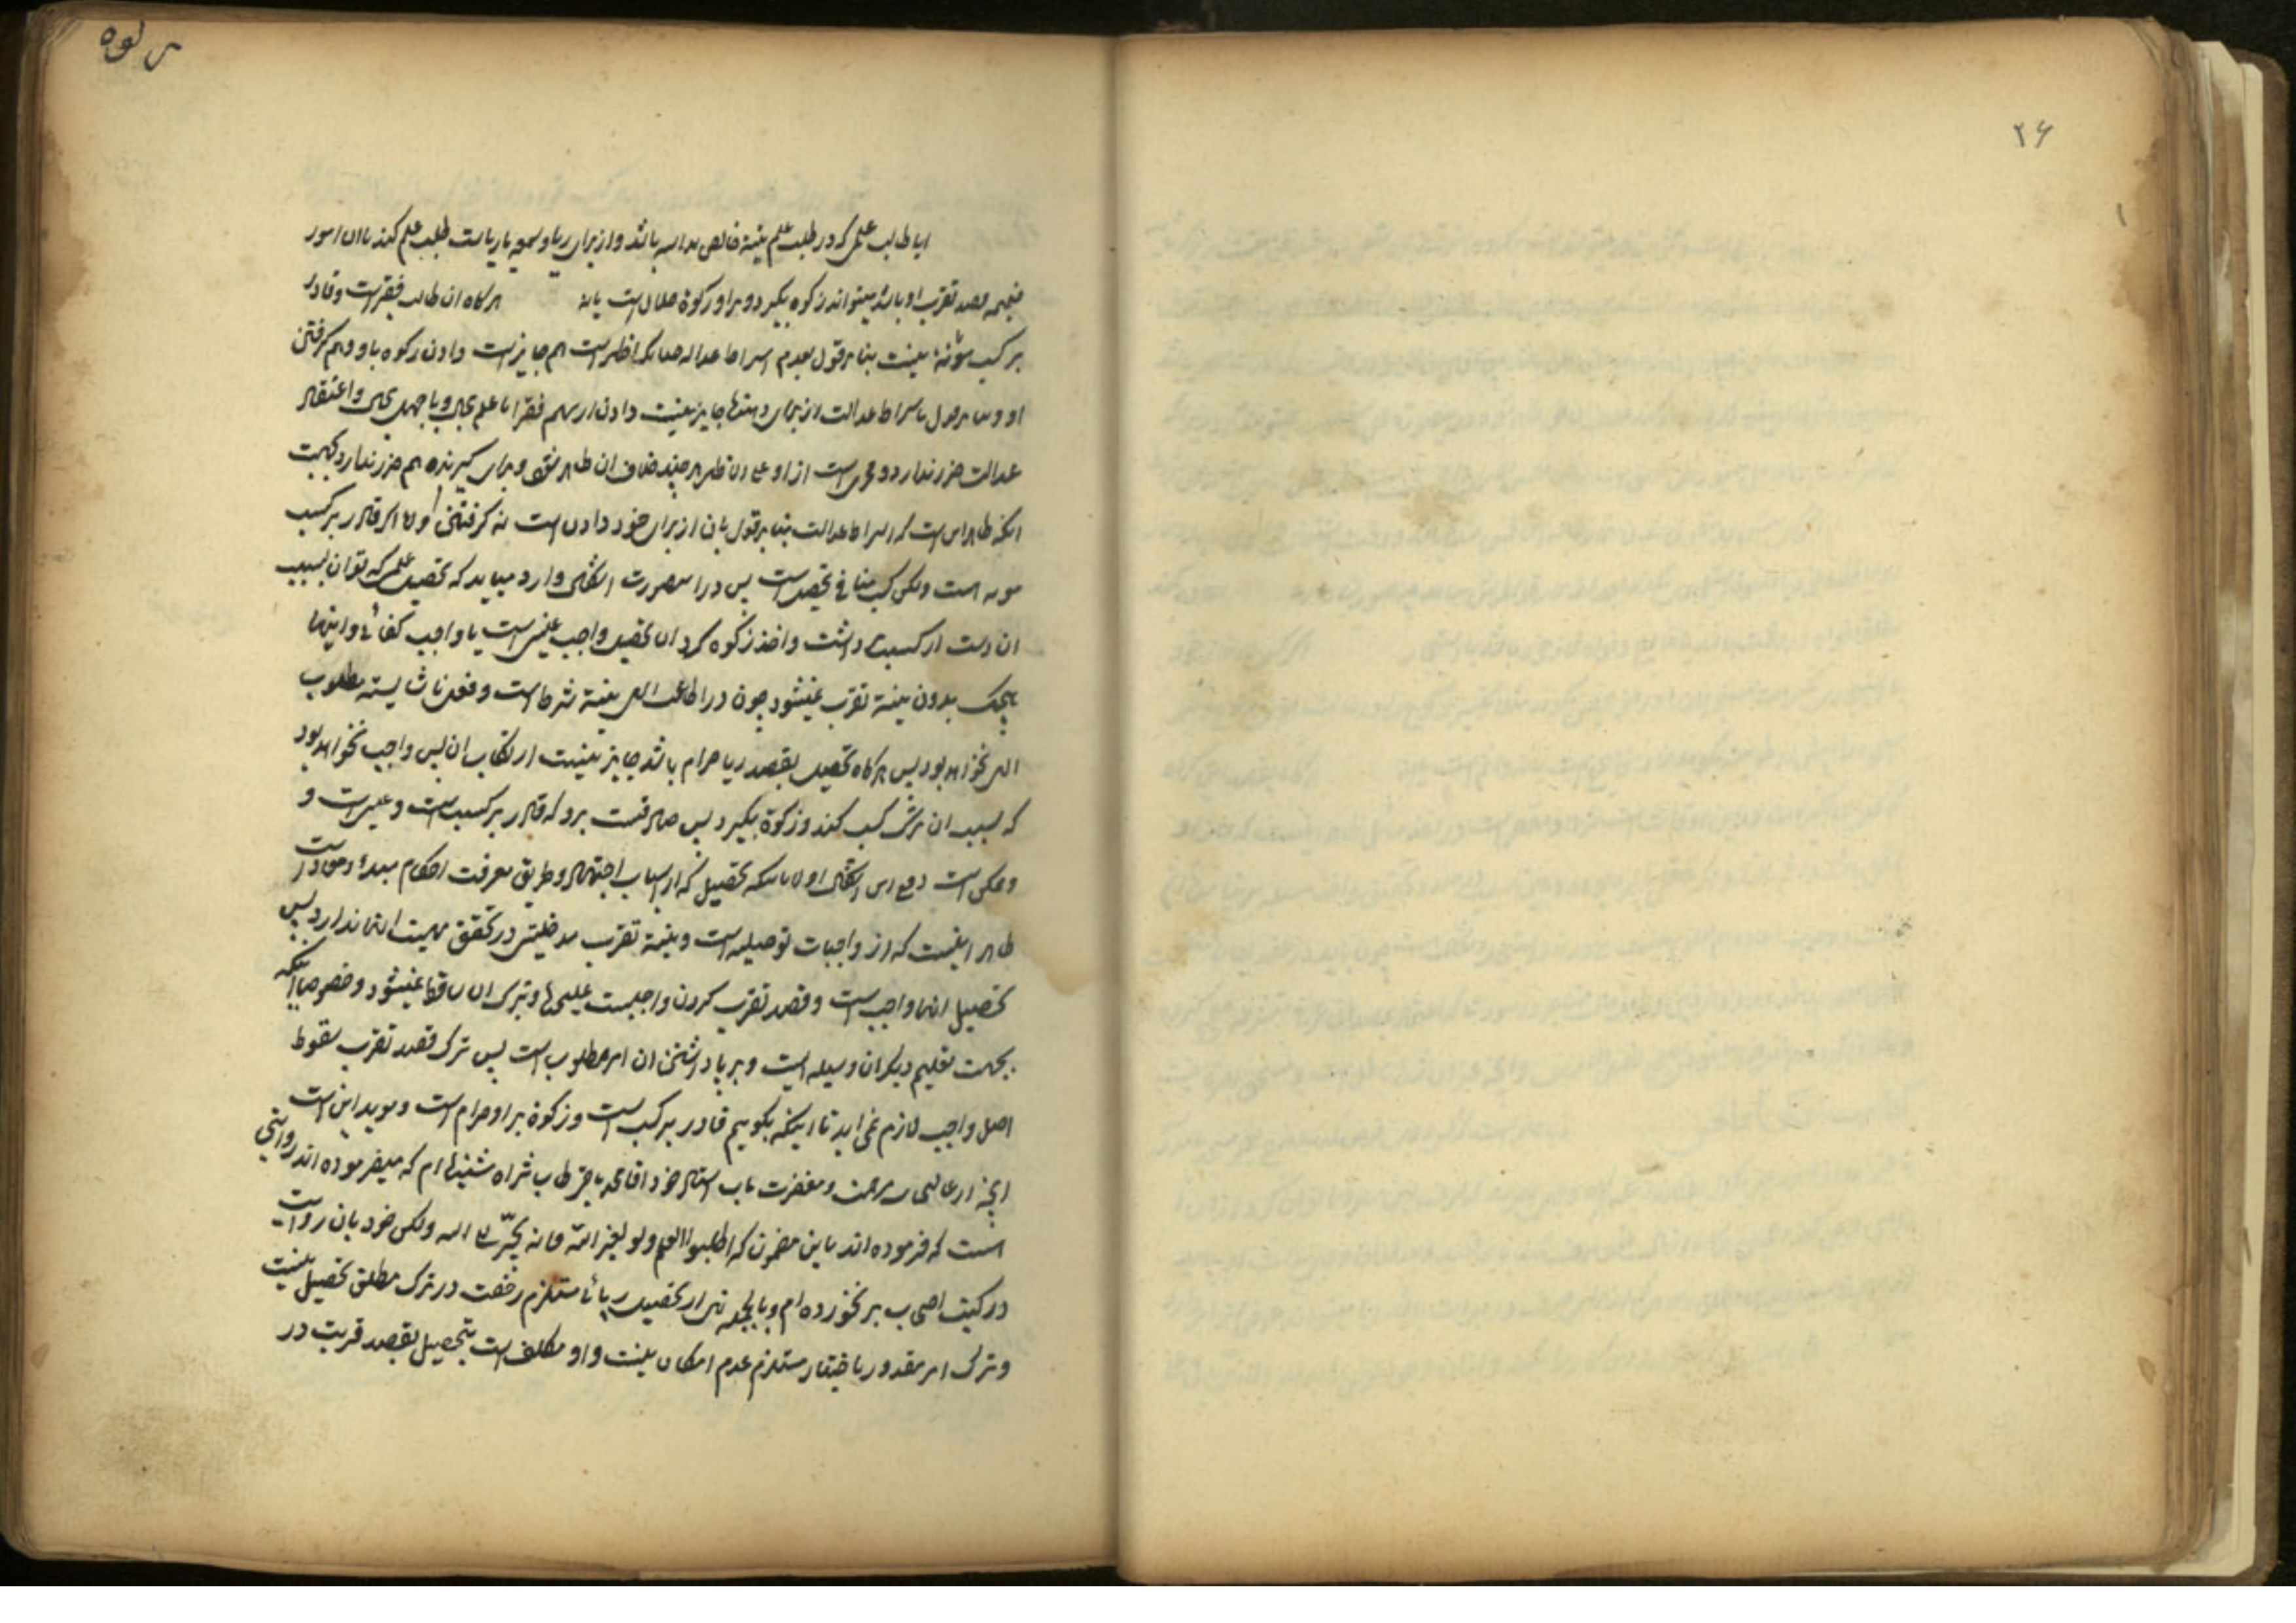 ۲۶
ایا طالب علمی که در طلب علم نیتة خالص باشد و از برای ریا و سمعه یا ریاست طلب علم کند با ان امور
ضمیمه قصد تقرب او باشد میتواند زکوة بگیرد و بر او زکوة حلال است یا نه هرگاه ان طالب فقیر است و قادر
بر کسب مؤنة نیست بنا بر قول بعدم اشتراط عدالة چنانکه اظهر است هم جایز است دادن زکوه باو و هم گرفتن
او و بنا بر قول باشتراط عدالت از برای دهنده جایز نیست دادن از سهم فقرا با علم بحال و با جهل بحال و اعتقاد
عدالت ضرر ندارد و مجزی است از او علی الظاهر هر چند خلاف ان ظاهر شود و برای گیرنده هم ضرر ندارد بجهت
انکه ظاهر این است که اشتراط عدالت بنا بر قول بان از برای خود دادن است نه گرفتن و اما اگر قادر بر کسب
مونه است ولکن کسب منافی تحصیل است پس در این صورت اشکال وارد میاید که تحصیل علمی که توان بسبب
ان دست از کسب داشت و اخذ زکوه کرد ان تحصیل واجب عینی است یا واجب کفائی و اینها
هیچیک بدون نیة تقرب نمیشود چون در اطاعت الهی نیة شرط است و فعل ناشایسته مطلوب
الهی نخواهد بود پس هرگاه تحصیل بقصد ریا حرام باشد جایز نیست ارتکاب ان پس واجب نخواهد بود
که بسبب ان ترک کسب کند و زکوة بگیرد پس صادقست بر او که قادر بر کسب است و غنی است و
و ممکن است دفع این اشکال اولا باینکه تحصیل که از اسباب اجتهاد و طریق معرفت احکام مبدء و معاد است
ظاهر اینست که از واجبات توصلیه است و نیة تقرب مدخلیتی در تحقق مهیت انها ندارد پس
تحصیل انها واجب است و قصد تقرب کردن واجبیست علیحده و بترک ان ساقط نمیشود و خصوصا اینکه
بجهت تعلیم دیگران وسیله است و بر پا داشتن ان امر مطلوب است پس ترک قصد تقرب سقوط
اصل واجب لازم نمی اید تا اینکه بگوییم قادر بر کسب است و زکوة بر او حرام است و موید این است
انچه از عالیجناب رحمت و مغفرت ماب استاد خود اقا محمد باقر طاب ثراه شنیده ام که میفرموده اند روایتی
است که فرموده اند باین مضمون که اطلبوا العلم ولو لغیر الله فانه یجرّ الی الله ولکن خود بان روایت
در کتب اصحاب بر نخورده ام و بالجمله نهی از تحصیل ریائا مستلزم رخصت در ترک مطلق تحصیل نیست
و ترک امر مقدور باختیار مستلزم عدم امکان نیست و او مکلف است بتحصیل بقصد قربت در